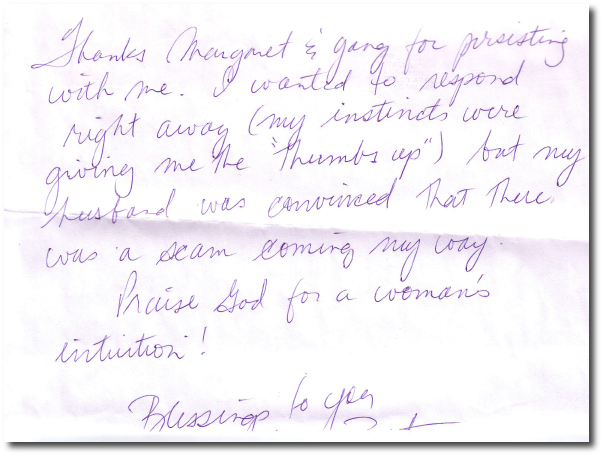 Thanks Margaret & gang for persisting
with me. I wanted to respond
right away (my instincts were
giving me the "thumbs up") but my
husband was convinced that there
was a scam coming my way.
Praise God for a woman's
intuition!
Blessings to you